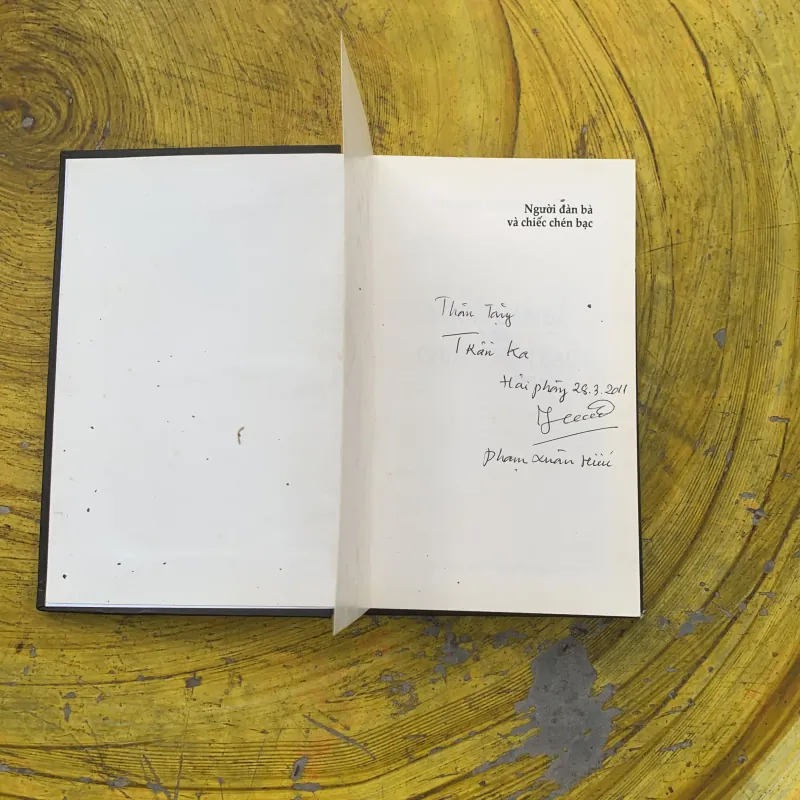 Người đàn bà
và chiếc chén bạc
Thân tặng
Trần Ka
Hải phòng 28.3.2011
Phạm Xuân Hiếu